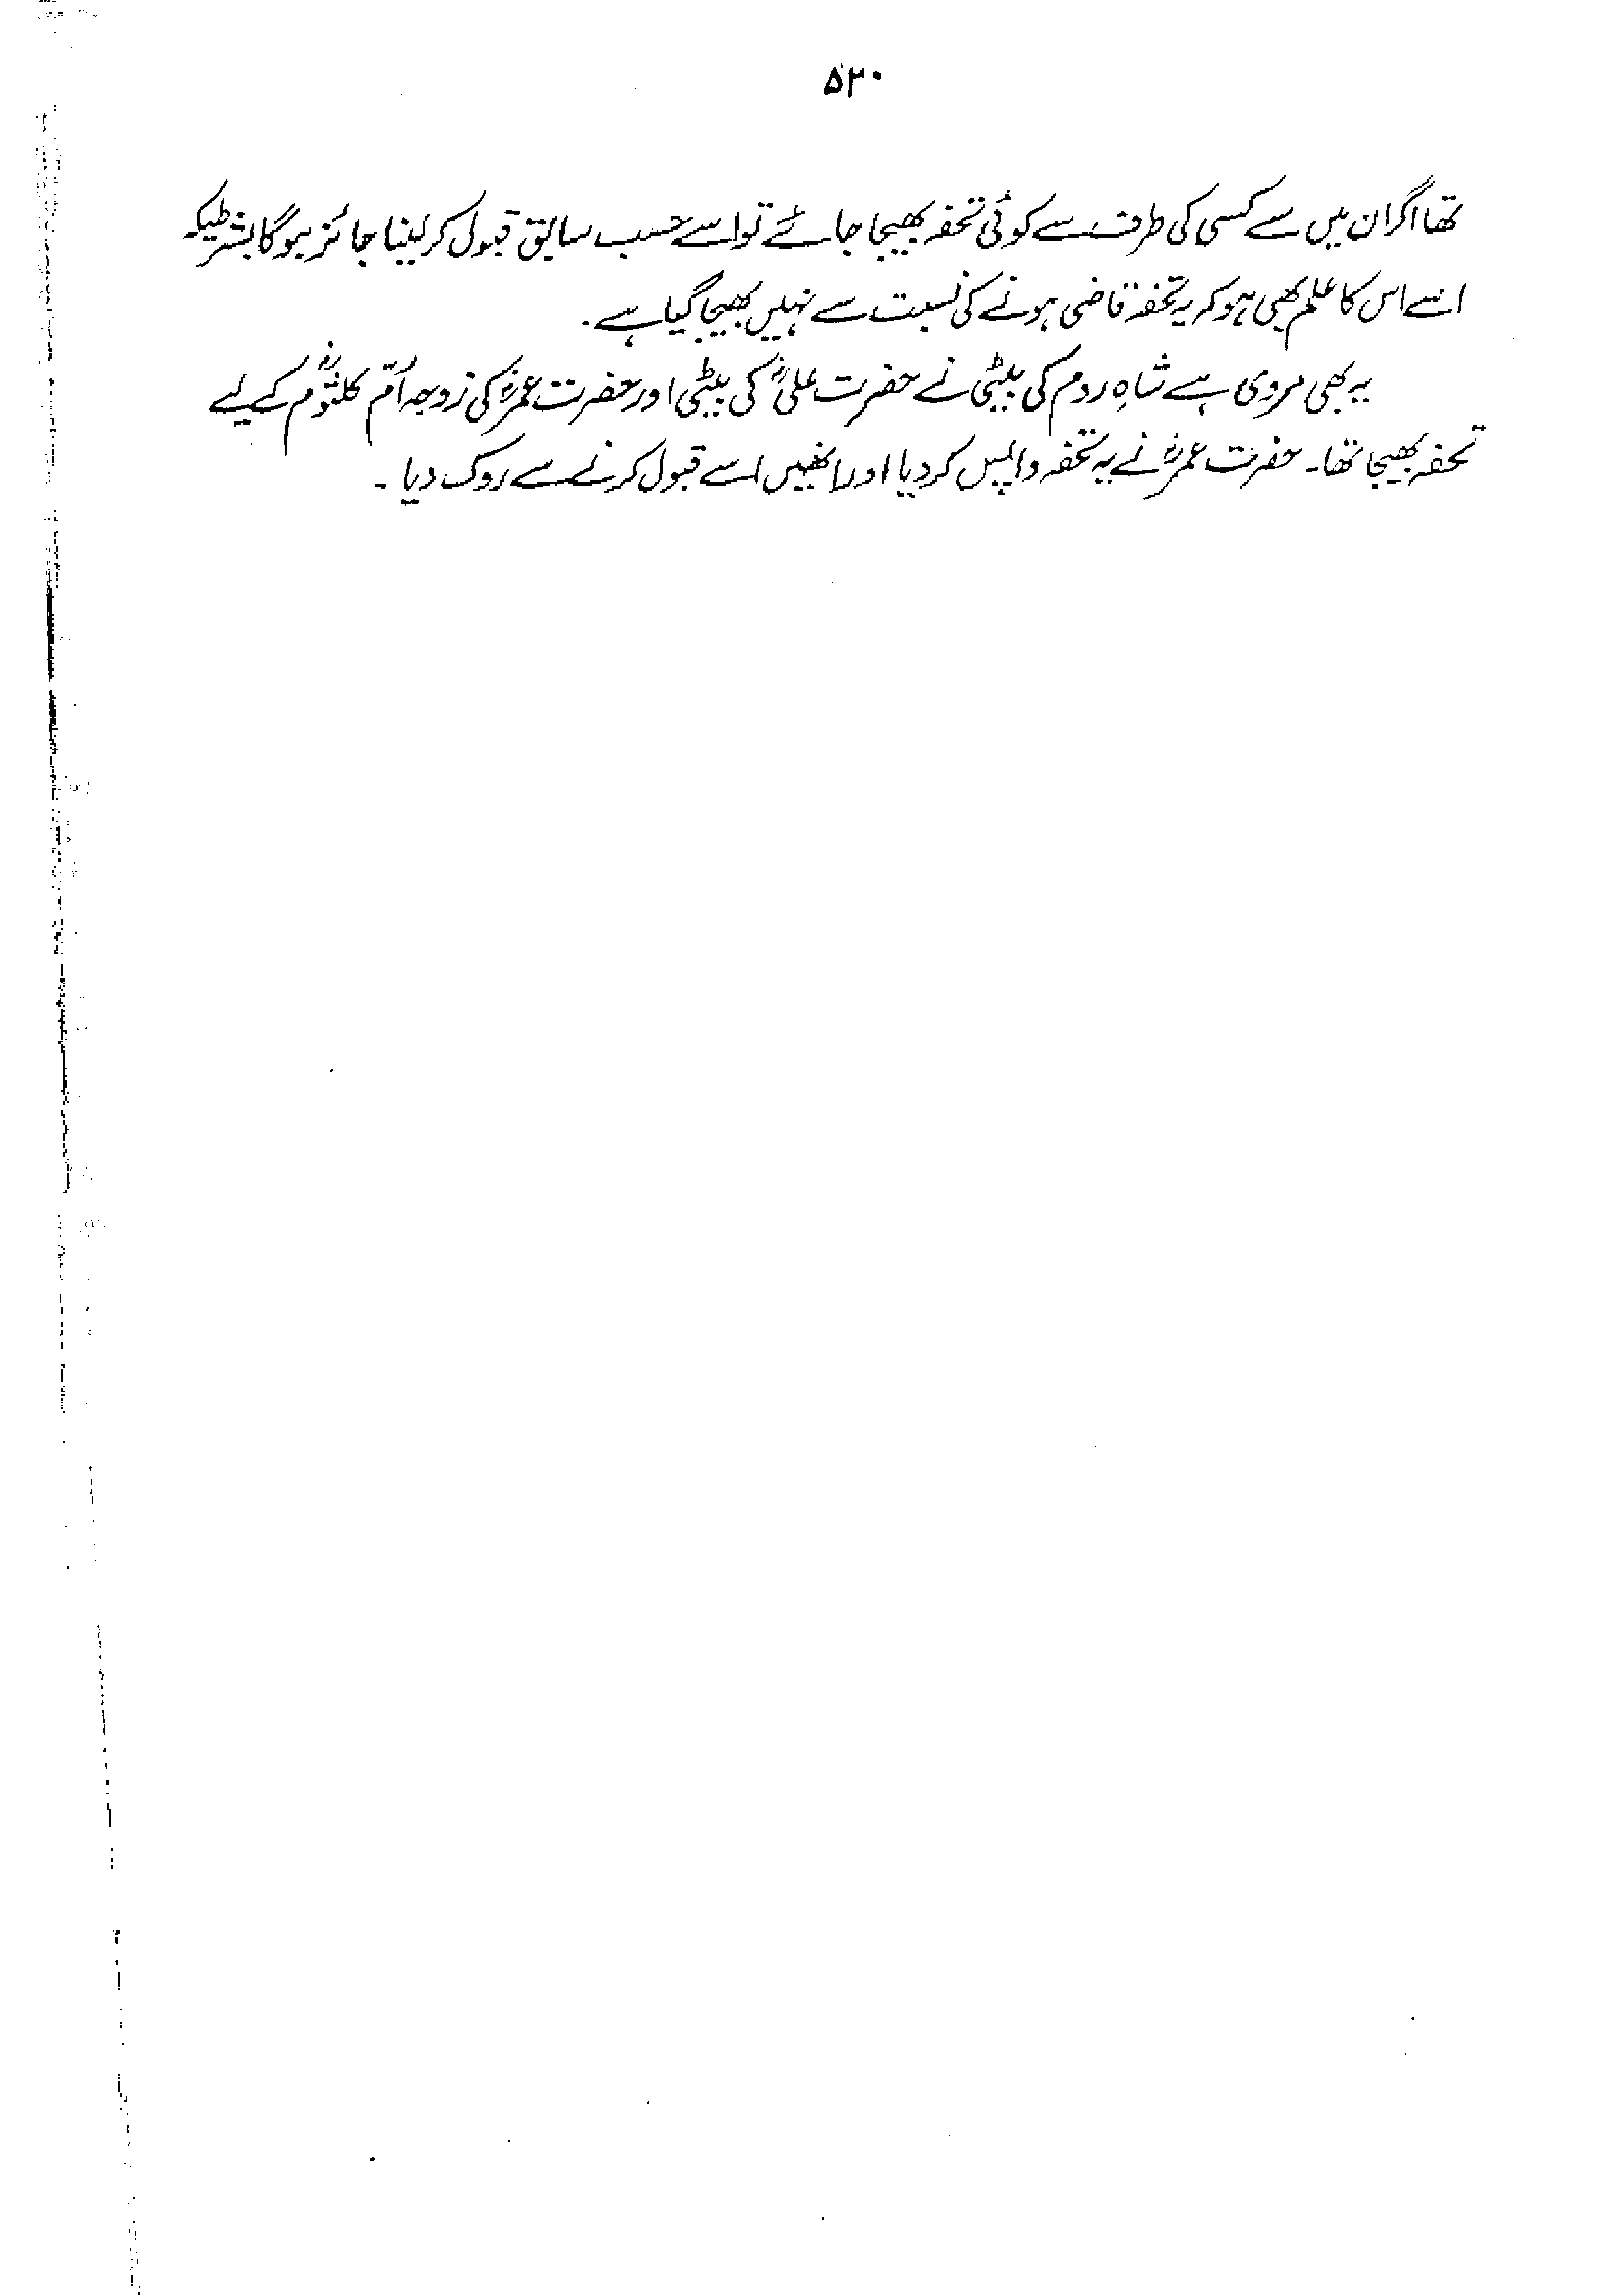 ۵۲۰
تھا اگر ان میں سے کسی کی طرف سے کوئی تحفہ بھیجا جائے تو اسے حسب سابق قبول کر لینا جائز ہو گا بشرطیکہ
اسے اس کا علم بھی ہو کہ یہ تحفہ قاضی ہونے کی نسبت سے نہیں بھیجا گیا ہے۔
یہ بھی مروی ہے شاہِ روم کی بیٹی نے حضرت علیؓ کی بیٹی اور حضرت عمرؓ کی زوجہ اُمّ کلثومؓ کے لیے
تحفہ بھیجا تھا۔ حضرت عمرؓ نے یہ تحفہ واپس کر دیا اور انھیں اسے قبول کرنے سے روک دیا۔